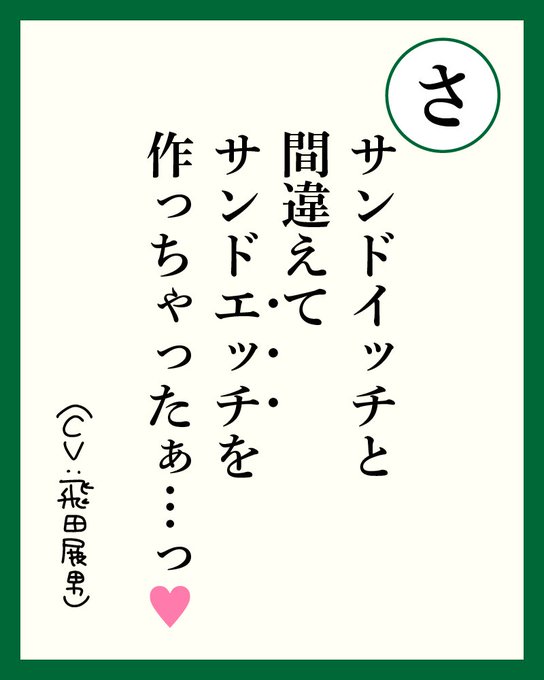 さ
サンドイッチと
間違えて
サンドエッチを
作っちゃったぁ…っ♥
(CV:飛田展男)